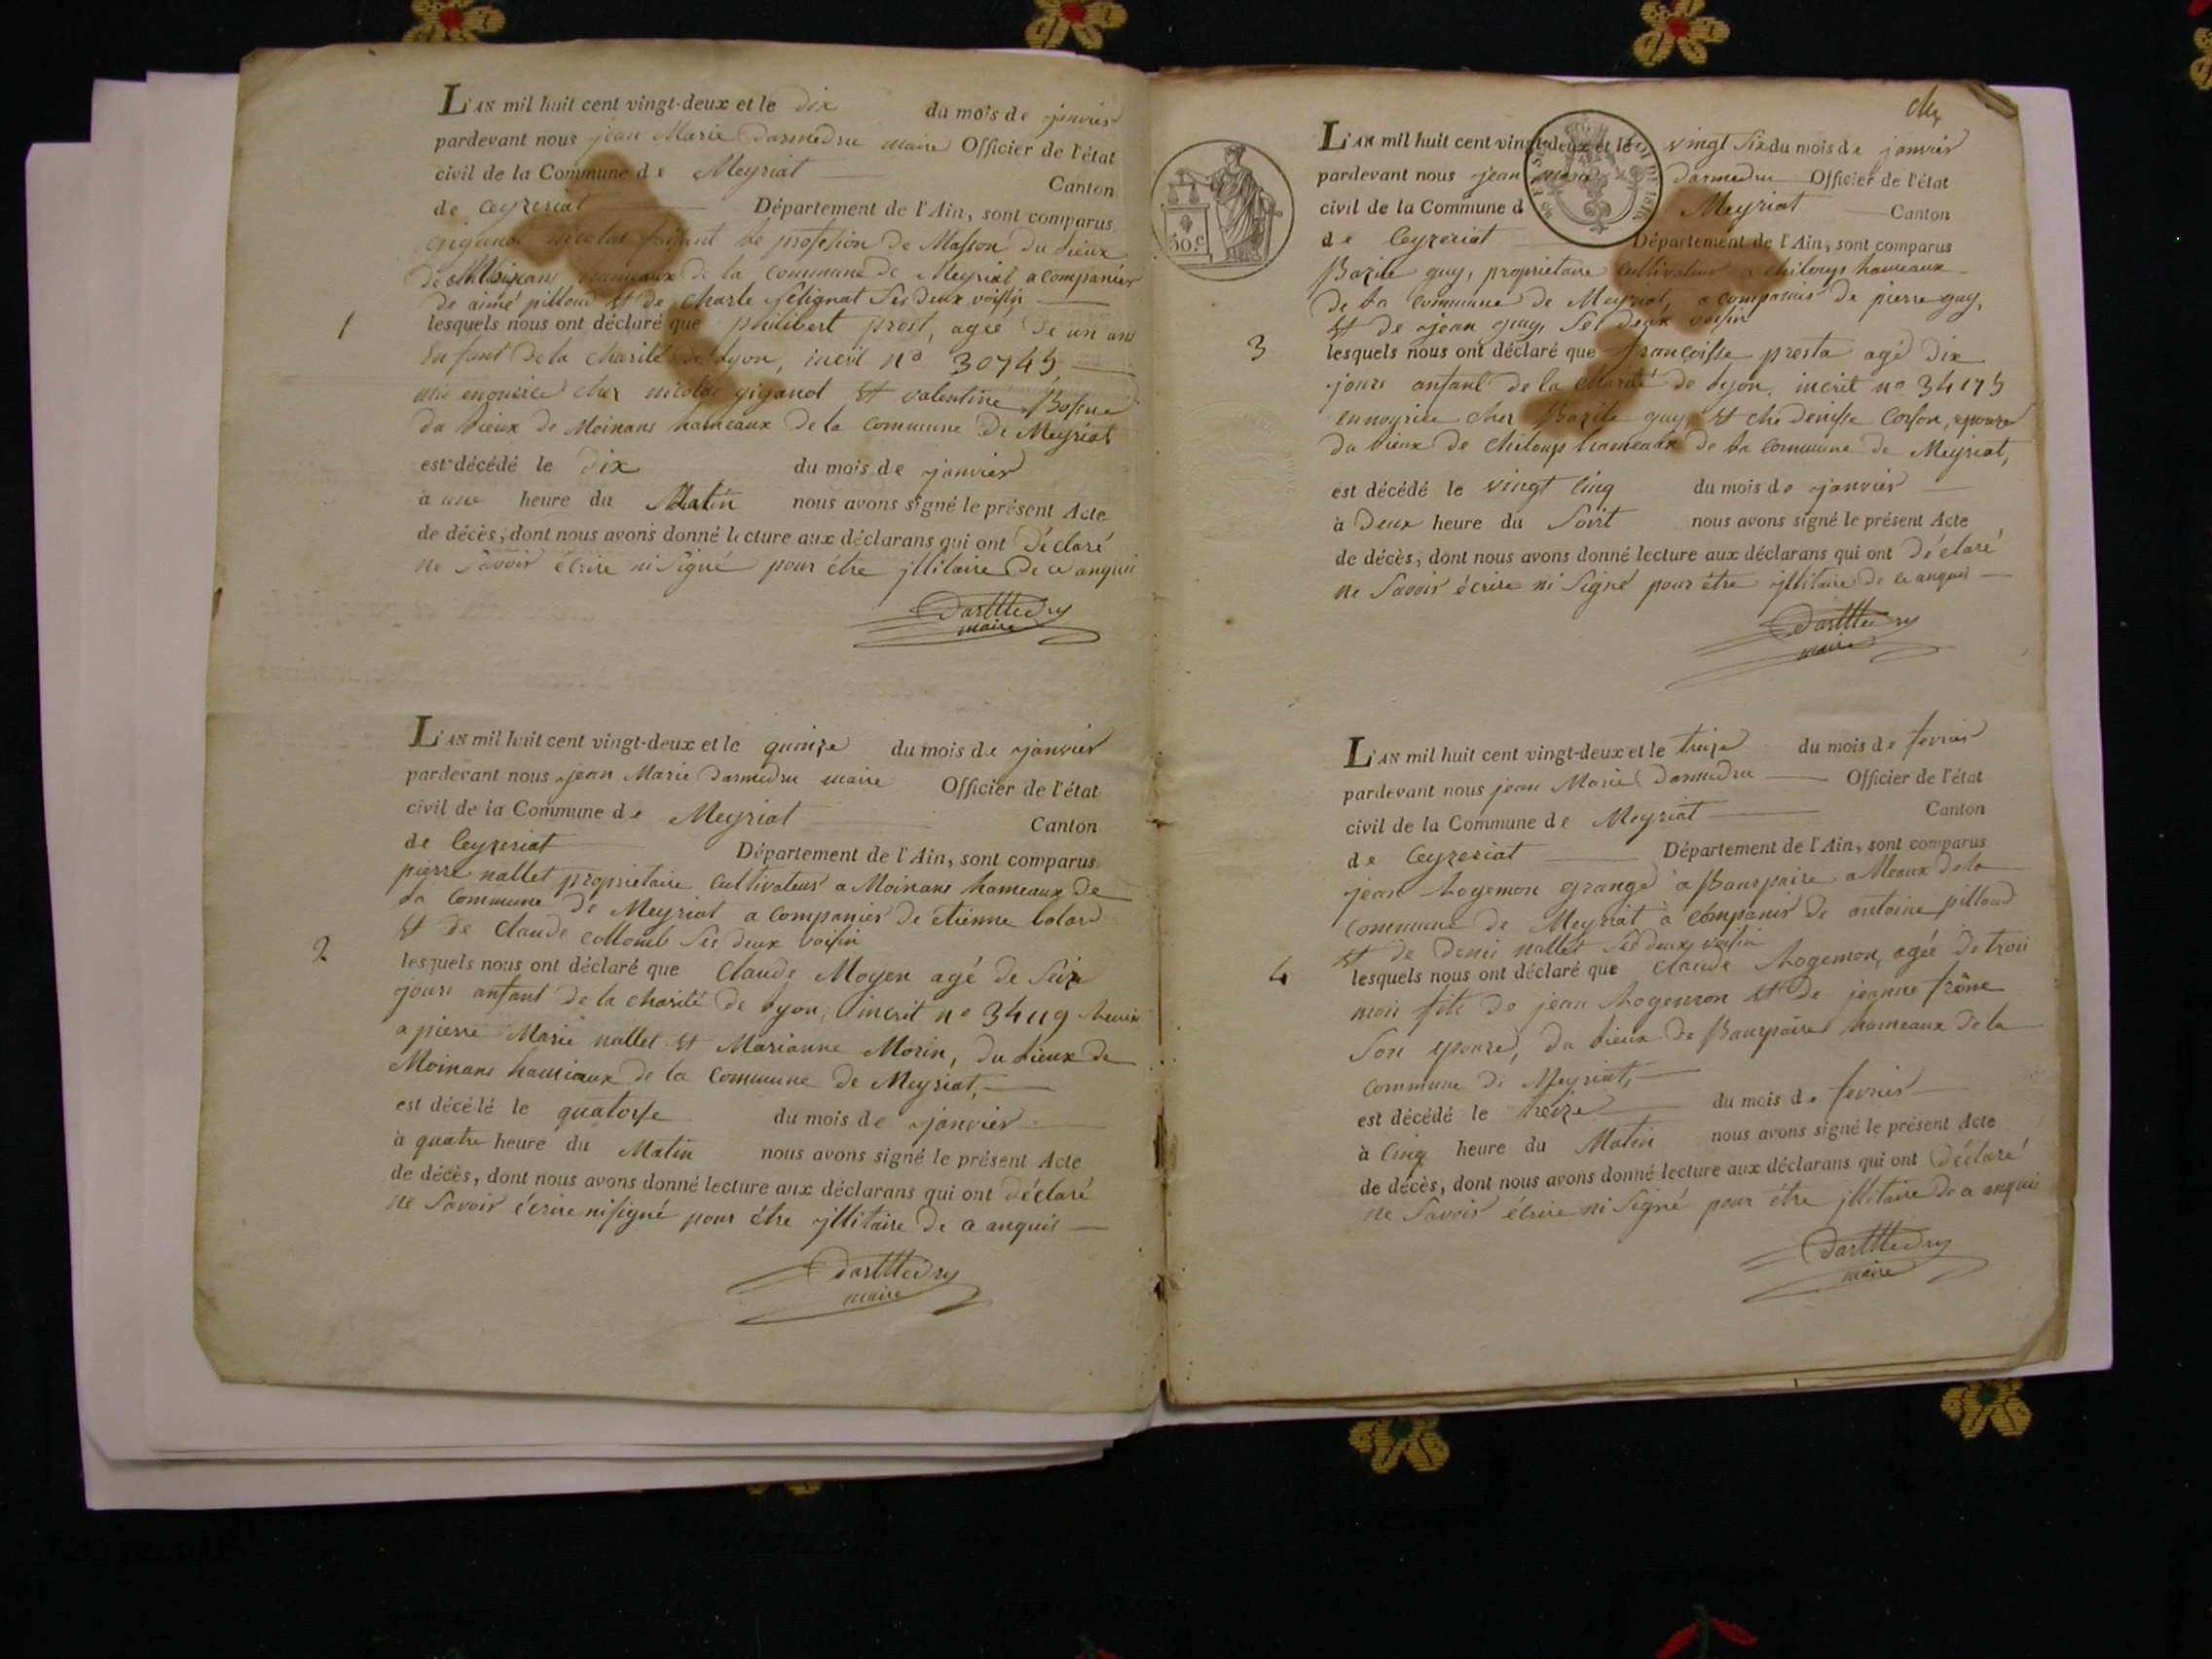 L'AN mil huit cent vingt-deux et le dix du mois de janvier
pardevant nous jean Marie Darmedru maire Officier de l'état
civil de la Commune de Meyriat Canton
de Ceyzeriat Département de l'Ain, sont comparus
nicolas faisant de profesion de Masson du Lieux
de Moinans hameaux de la commune de Meyriat a companier
de aimé pilloud et de charle Selignat Ses deux voisin
1
lesquels nous ont déclaré que philibert prost, agée de un ans
Enfant de la charité de Lyon, incrit nº 30745
mis enourice cher nicolas giganot et valentine
du Lieux de Moinans hameaux de la commune de Meyriat
est décédé le dix du mois de janvier
à une heure du Matin nous avons signé le présent Acte
de décès, dont nous avons donné lecture aux déclarans qui ont Déclaré
ne Savoir écrire ni Signé pour étre jllitaire De ce anquis
DarMedru
maire
L'AN mil huit cent vingt-deux et le quinze du mois de janvier
pardevant nous jean Marie Darmedru maire Officier de l'état
civil de la Commune de Meyriat Canton
de Ceyzeriat Département de l'Ain, sont comparus
pierre nallet propriétaire Cultivateur a Moinans hameaux de
La Commune de Meyriat a companier de étienne
et de Claude Collomb Ses deux voisin
2
lesquels nous ont déclaré que Claude Moyen agé de Seize
jours anfant de la charité de Lyon, incrit nº 34119
a pierre Marie nallet et Marianne Morin, du Lieux de
Moinans hameaux de la Commune de Meyriat,
est décédé le quatorse du mois de janvier
à quatre heure du Matin nous avons signé le présent Acte
de décès, dont nous avons donné lecture aux déclarans qui ont déclaré
ne Savoir écrire ni signé pour étre jllitaire de a anquis
DarMedru
maire
50.c
L'AN mil huit cent vingt-deux et le vingt Six du mois de janvier
pardevant nous jean Marie Darmedru Officier de l'état
civil de la Commune d Meyriat Canton
de Ceyzeriat Département de l'Ain, sont comparus
Bazile guy, propriétaire Cultivateur a chiloup hameaux
de La commune de Meyriat, a companier de pierre guy,
et de jean guy, Ses deux voisin
3
lesquels nous ont déclaré que françoisse presta agé dix
jours anfant de la charité de Lyon, incrit nº 34175
ennourice cher Bazile guy et che denisse Corson, epouze
du Lieux de chiloup hameaux de La Commune de Meyriat,
est décédé le vingt Cinq du mois de janvier
à Deux heure du Soirt nous avons signé le présent Acte
de décès, dont nous avons donné lecture aux déclarans qui ont déclaré
ne Savoir écrire ni Signé pour étre jllitaire de ce anquis
DarMedru
maire
L'AN mil huit cent vingt-deux et le treize du mois de fevrier
pardevant nous jean Marie Darmedru Officier de l'état
civil de la Commune de Meyriat Canton
de Ceyzeriat Département de l'Ain, sont comparus
jean hogemon grangé a Baurpaire aMeaux de la
commune de Meyriat à companier de antoine pilloud
et de Denis nallet Ses deux voisin
4
lesquels nous ont déclaré que claude hogemon, agée de trois
mois fils de jean hogemon et de jeanne frône
Son epouze, du Lieux de Baurpaire hameaux de la
commune de Meyriat,
est décédé le treize du mois de fevrier
à Cinq heure du Matin nous avons signé le présent Acte
de décès, dont nous avons donné lecture aux déclarans qui ont Déclaré
ne Savoir écrire ni Signé pour étre jllitaire de a anquis
DarMedru
maire